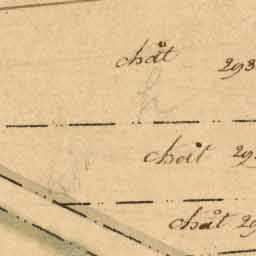 chåt 293
chåt 29
chåt 29